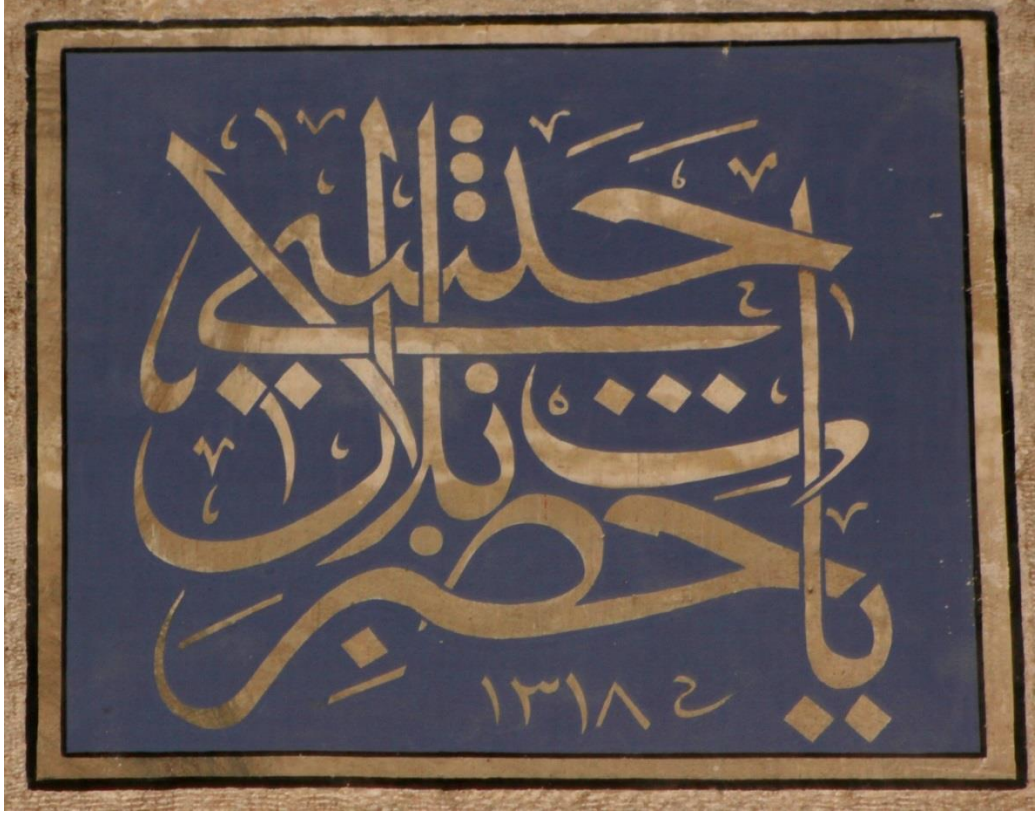 يا حضرت بلال حبشي
١٣١٨